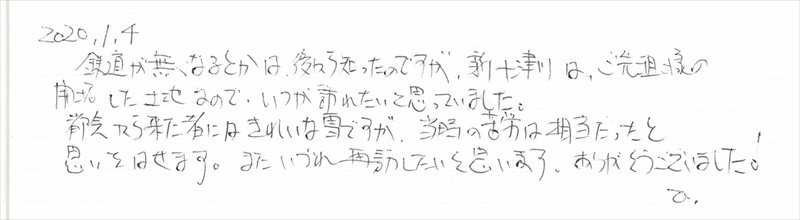 2020,1,4
鉄道が無くなるとかは、後から知ったのですが、新十津川は、ご先祖様の
開拓した土地なので、いつか訪れたいと思っていました。
都会から来た者にはきれいな雪ですが、当時の苦労は相当だったと
思いをはせます。またいづれ再訪したいと思います。ありがとうございました!